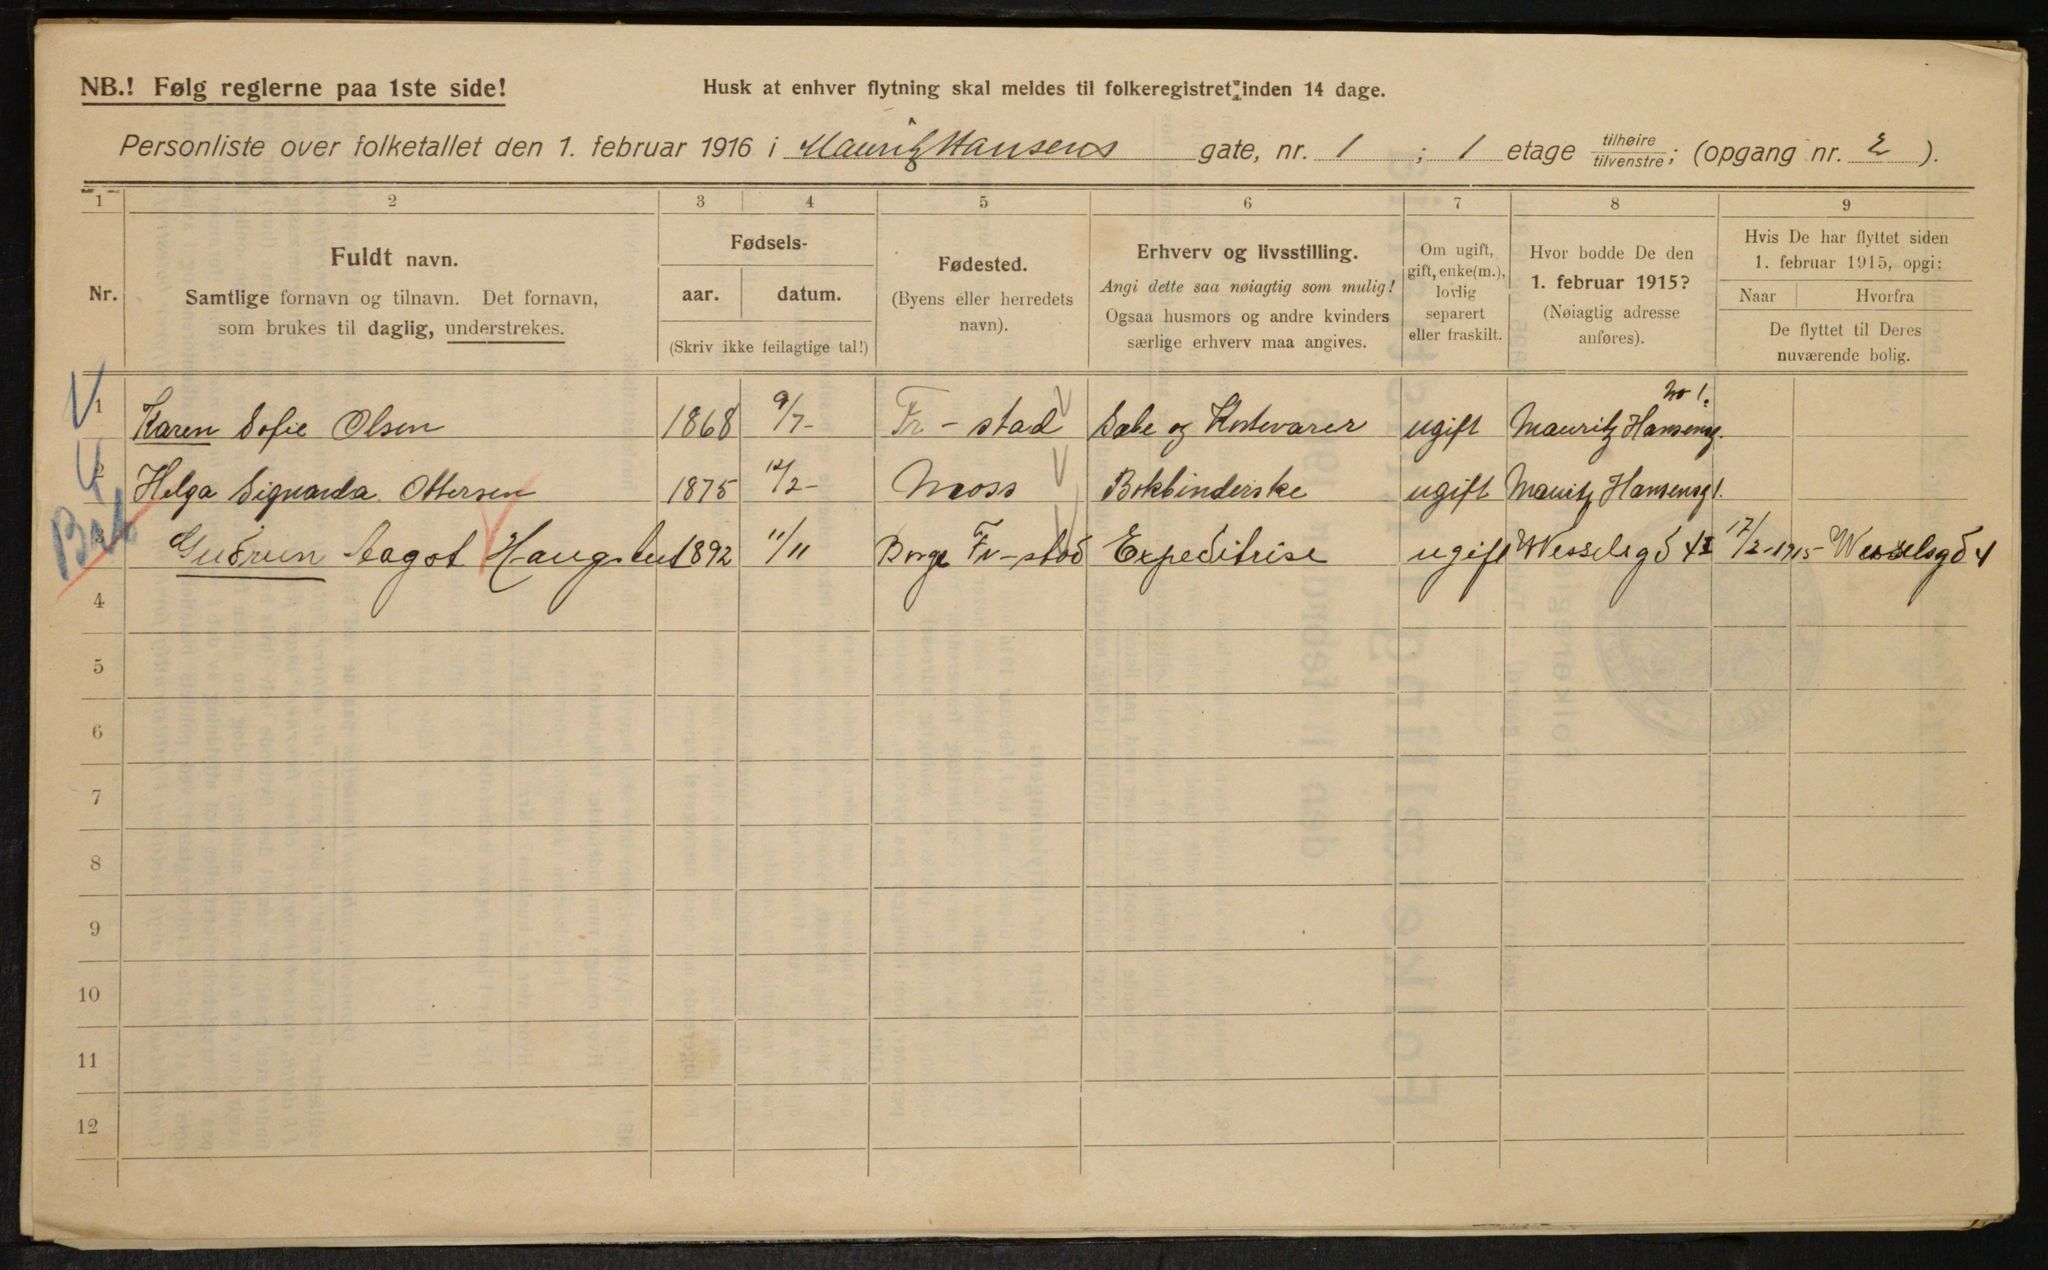 NB.! Følg reglerne paa 1ste side!
Husk at enhver flytning skal meldes til folkeregistret inden 14 dage.
Personliste over folketallet den 1. februar 1916 i Mauritz Hansens gate, nr. 1 ; 1 etage tilhøire/tilvenstre; (opgang nr. 2 ).
1 2 3 4 5 6 7 8 9
Nr.
Fuldt navn.
Samtlige fornavn og tilnavn. Det fornavn,
som brukes til daglig, understrekes.
Fødsels-
aar. datum.
(Skriv ikke feilagtige tal!)
Fødested.
(Byens eller herredets
navn).
Erhverv og livsstilling.
Angi dette saa nøiagtig som mulig!
Ogsaa husmors og andre kvinders
særlige erhverv maa angives.
Om ugift,
gift, enke(m.),
lovlig
separert
eller fraskilt.
Hvor bodde De den
1. februar 1915?
(Nøiagtig adresse
anføres).
Hvis De har flyttet siden
1. februar 1915, opgi:
Naar Hvorfra
De flyttet til Deres
nuværende bolig.
1 Karen Sofie Olsen 1868 9/7- Fr-stad Sæbe og Kostevarer ugift Mauritz Hanseng. no 1.
2 Helga Sigvarda Ottersen 1875 12/2- Moss Bokbinderske ugift Mauritz Hansensg 1.
3 Gudrun Aagot Haugsted 1892 11/11 Borge Fr-stad Expeditrise ugift Wesselsgd 4 I 17/2-1915- Wesselsgd 4
4
5
6
7
8
9
10
11
12